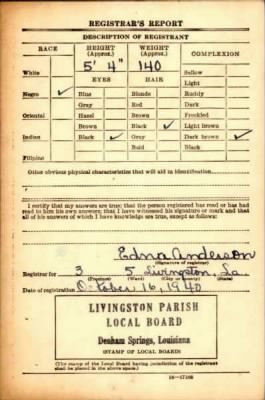 REGISTRAR'S REPORT
DESCRIPTION OF REGISTRANT
RACE HEIGHT (Approx.) WEIGHT (Approx.) COMPLEXION
White 5' 4" 140 Sallow
EYES HAIR Light
Negro ✓ Blue Blonde Ruddy
Gray Red Dark
Oriental Hazel Brown Freckled
Brown Black ✓ Light brown
Indian Black ✓ Gray Dark brown ✓
Bald Black
Filipino
Other obvious physical characteristics that will aid in identification
I certify that my answers are true; that the person registered has read or has had
read to him his own answers; that I have witnessed his signature or mark and that
all of his answers of which I have knowledge are true, except as follows:
Edna Anderson
(Signature of registrar)
Registrar for 3 5 Livingston, La.
(Precinct) (Ward) (City or County) (State)
Date of registration October 16, 1940
LIVINGSTON PARISH
LOCAL BOARD
Denham Springs, Louisiana
(STAMP OF LOCAL BOARD)
(The stamp of the Local Board having jurisdiction of the registrant
shall be placed in the above space.)